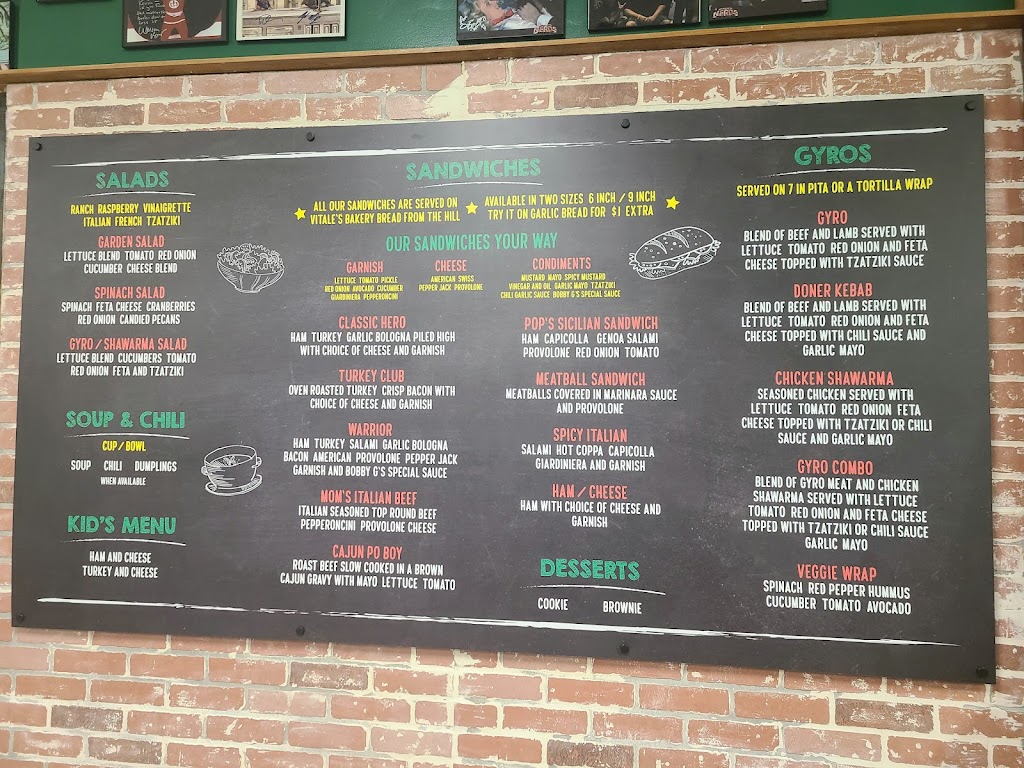 SALADS
RANCH RASPBERRY VINAIGRETTE
ITALIAN FRENCH TZATZIKI
GARDEN SALAD
LETTUCE BLEND TOMATO RED ONION
CUCUMBER CHEESE BLEND
SPINACH SALAD
SPINACH FETA CHEESE CRANBERRIES
RED ONION CANDIED PECANS
GYRO / SHAWARMA SALAD
LETTUCE BLEND CUCUMBERS TOMATO
RED ONION FETA AND TZATZIKI
SOUP & CHILI
CUP / BOWL
SOUP CHILI DUMPLINGS
WHEN AVAILABLE
KID'S MENU
HAM AND CHEESE
TURKEY AND CHEESE
SANDWICHES
ALL OUR SANDWICHES ARE SERVED ON
VITALE'S BAKERY BREAD FROM THE HILL
AVAILABLE IN TWO SIZES 6 INCH / 9 INCH
TRY IT ON GARLIC BREAD FOR $1 EXTRA
OUR SANDWICHES YOUR WAY
GARNISH
LETTUCE TOMATO PICKLE
RED ONION AVOCADO CUCUMBER
GIARDINIERA PEPPERONCINI
CHEESE
AMERICAN SWISS
PEPPER JACK PROVOLONE
CONDIMENTS
MUSTARD MAYO SPICY MUSTARD
VINEGAR AND OIL GARLIC MAYO TZATZIKI
CHILI GARLIC SAUCE BOBBY G'S SPECIAL SAUCE
CLASSIC HERO
HAM TURKEY GARLIC BOLOGNA PILED HIGH
WITH CHOICE OF CHEESE AND GARNISH
TURKEY CLUB
OVEN ROASTED TURKEY CRISP BACON WITH
CHOICE OF CHEESE AND GARNISH
WARRIOR
HAM TURKEY SALAMI GARLIC BOLOGNA
BACON AMERICAN PROVOLONE PEPPER JACK
GARNISH AND BOBBY G'S SPECIAL SAUCE
MOM'S ITALIAN BEEF
ITALIAN SEASONED TOP ROUND BEEF
PEPPERONCINI PROVOLONE CHEESE
CAJUN PO BOY
ROAST BEEF SLOW COOKED IN A BROWN
CAJUN GRAVY WITH MAYO LETTUCE TOMATO
POP'S SICILIAN SANDWICH
HAM CAPICOLLA GENOA SALAMI
PROVOLONE RED ONION TOMATO
MEATBALL SANDWICH
MEATBALLS COVERED IN MARINARA SAUCE
AND PROVOLONE
SPICY ITALIAN
SALAMI HOT COPPA CAPICOLLA
GIARDINIERA AND GARNISH
HAM / CHEESE
HAM WITH CHOICE OF CHEESE AND
GARNISH
DESSERTS
COOKIE BROWNIE
GYROS
SERVED ON 7 IN PITA OR A TORTILLA WRAP
GYRO
BLEND OF BEEF AND LAMB SERVED WITH
LETTUCE TOMATO RED ONION AND FETA
CHEESE TOPPED WITH TZATZIKI SAUCE
DONER KEBAB
BLEND OF BEEF AND LAMB SERVED WITH
LETTUCE TOMATO RED ONION AND FETA
CHEESE TOPPED WITH CHILI SAUCE AND
GARLIC MAYO
CHICKEN SHAWARMA
SEASONED CHICKEN SERVED WITH
LETTUCE TOMATO RED ONION FETA
CHEESE TOPPED WITH TZATZIKI OR CHILI
SAUCE AND GARLIC MAYO
GYRO COMBO
BLEND OF GYRO MEAT AND CHICKEN
SHAWARMA SERVED WITH LETTUCE
TOMATO RED ONION AND FETA CHEESE
TOPPED WITH TZATZIKI OR CHILI SAUCE
GARLIC MAYO
VEGGIE WRAP
SPINACH RED PEPPER HUMMUS
CUCUMBER TOMATO AVOCADO